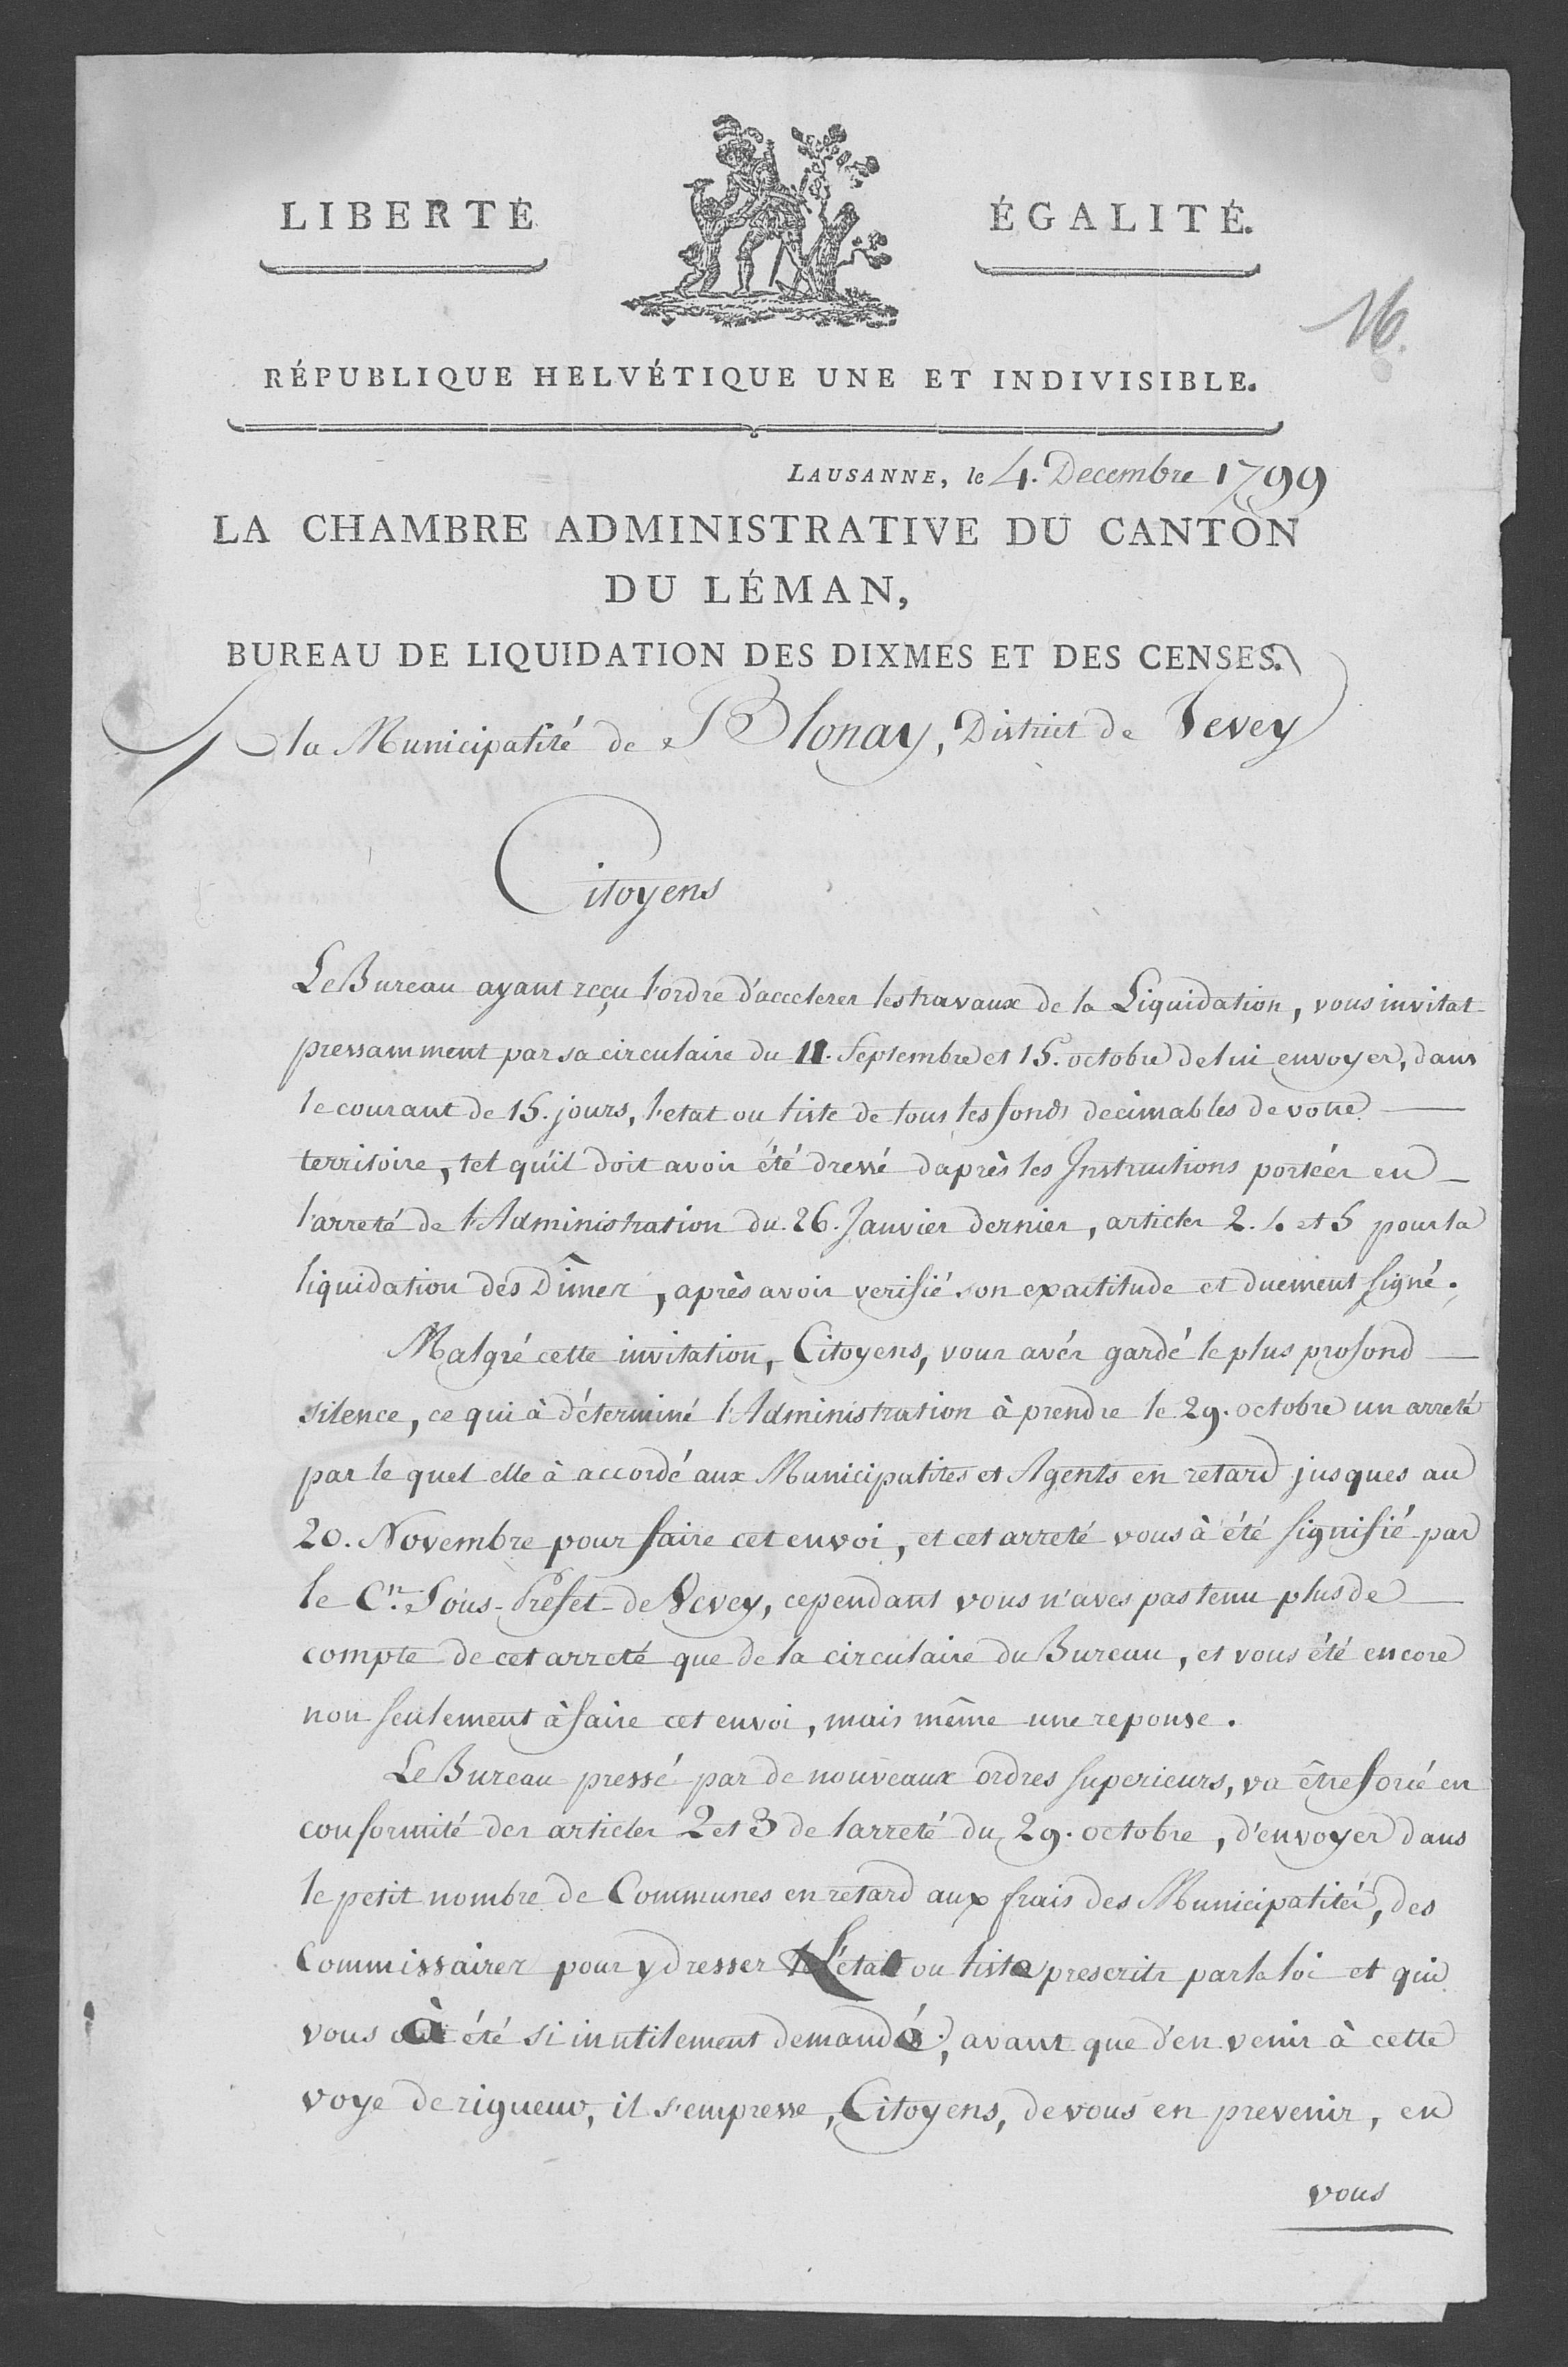 LIBERTÉ
ÉGALITÉ.
16.
RÉPUBLIQUE HELVÉTIQUE UNE ET INDIVISIBLE.
LAUSANNE, le 4. Decembre 1799
LA CHAMBRE ADMINISTRATIVE DU CANTON
DU LÉMAN,
BUREAU DE LIQUIDATION DES DIXMES ET DES CENSES.
A la Municipalité de Blonay, District de Vevey
Citoyens
Le Bureau ayant reçu l'ordre d'accelerer les travaux de la Liquidation, vous invitat
pressamment par sa circulaire du 11. Septembre et 15. octobre de lui envoyer, dans
le courant de 15. jours, l'etat ou liste de tous les fonds decimables de votre
territoire, tel qu'il doit avoir été dressé daprès les Instructions portées en
l'arreté de l'Administration du 26. Janvier dernier, articles 2. 4 et 5 pour la
liquidation des Dîmes, après avoir verifié son exactitude et duement signé.
Malgré cette invitation, Citoyens, vous avés gardé le plus profond
silence, ce qui à déterminé l'Administration à prendre le 29. octobre un arreté
par le quel elle à accordé aux Municipalites et Agents en retard jusques au
20. Novembre pour faire cet envoi, et cet arreté vous à été signifié par
le C.n Sous-Prefet de Vevey, cependant vous n'aves pas tenu plus de
compte de cet arreté que de la circulaire du Bureau, et vous été encore
non seulement à faire cet envoi, mais même une reponse.
Le Bureau pressé par de nouveaux ordres superieurs, va être forcé en
conformité des articles 2 et 3 de l'arreté du 29. octobre, d'envoyer dans
le petit nombre de Communes en retard aux frais des Municipalités, des
Commissaires pour y dresser L'état ou liste prescrite par la loi et qui
vous à été si inutilement demandé; avant que d'en venir à cette
voye de rigueur, il s'empresse, Citoyens, de vous en prevenir, en
vous